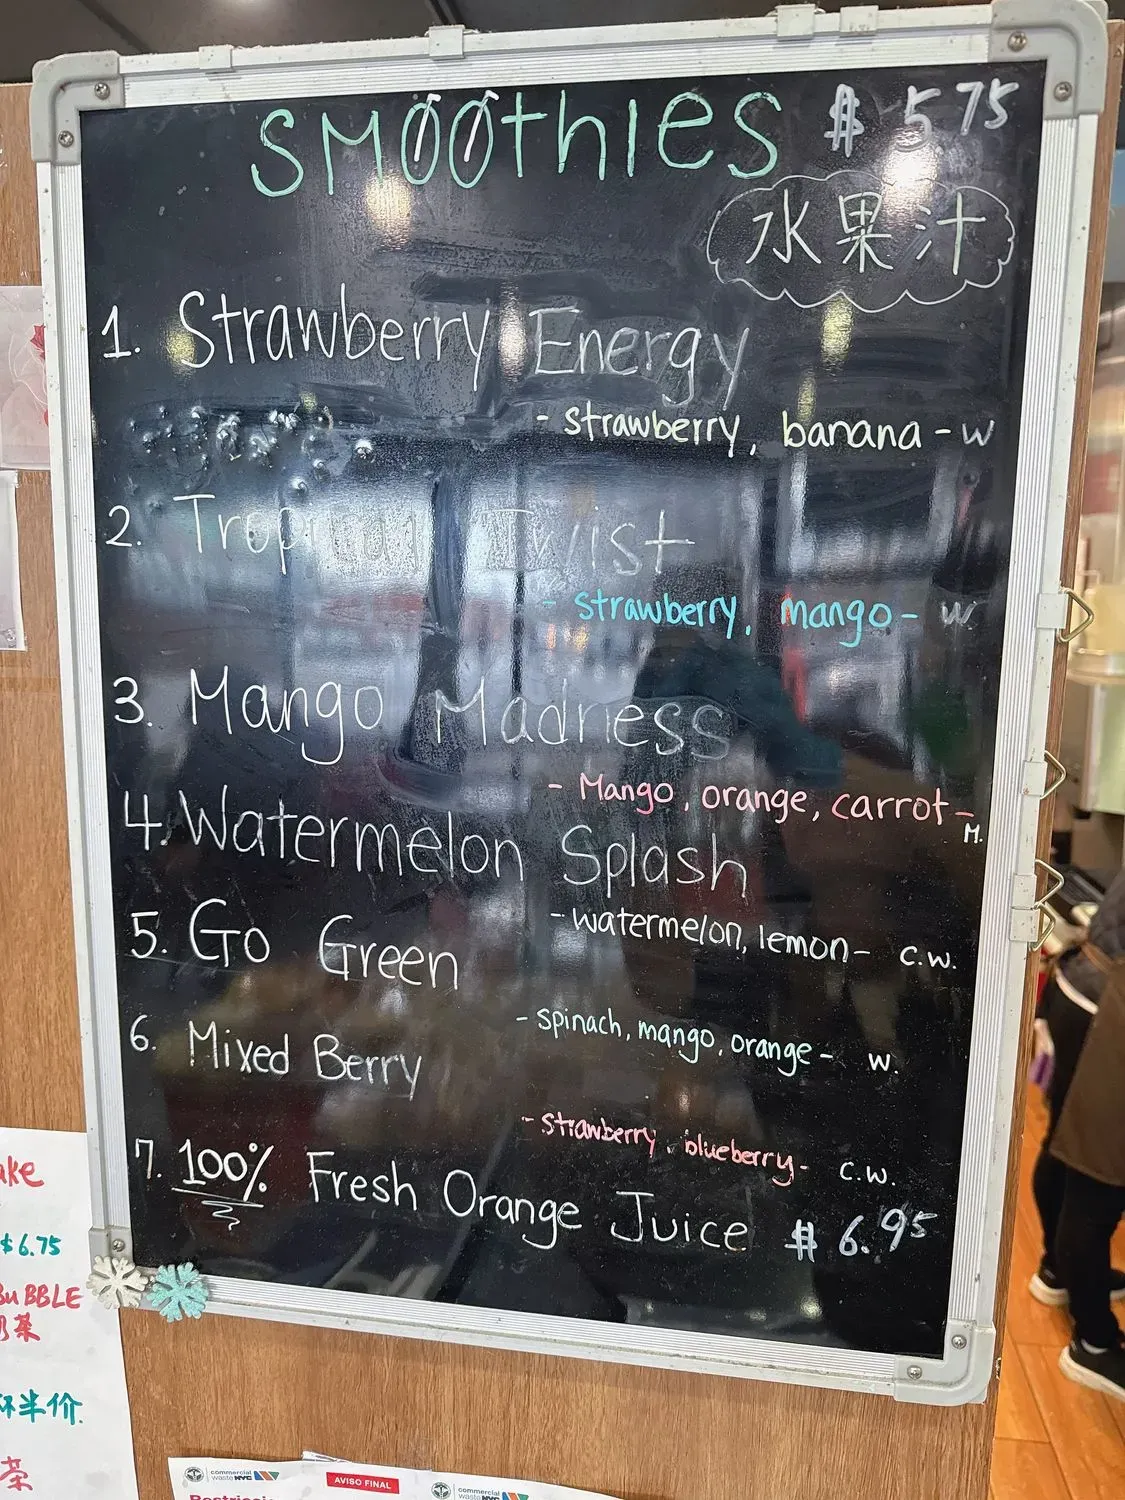 SMOOthIES $ 5.75
水果汁
1. Strawberry Energy
- strawberry, banana - W
2. Tropical Twist
- strawberry, mango - W.
3. Mango Madness
- Mango, orange, carrot - M.
4. Watermelon Splash
- watermelon, lemon - C.W.
5. Go Green
- spinach, mango, orange - W.
6. Mixed Berry
- strawberry, blueberry - C.W.
7. 100% Fresh Orange Juice $ 6.95
$6.75
BuBBLE
奶茶
杯半价
茶
commercial
waste NYC
AVISO FINAL
commercial
waste NYC